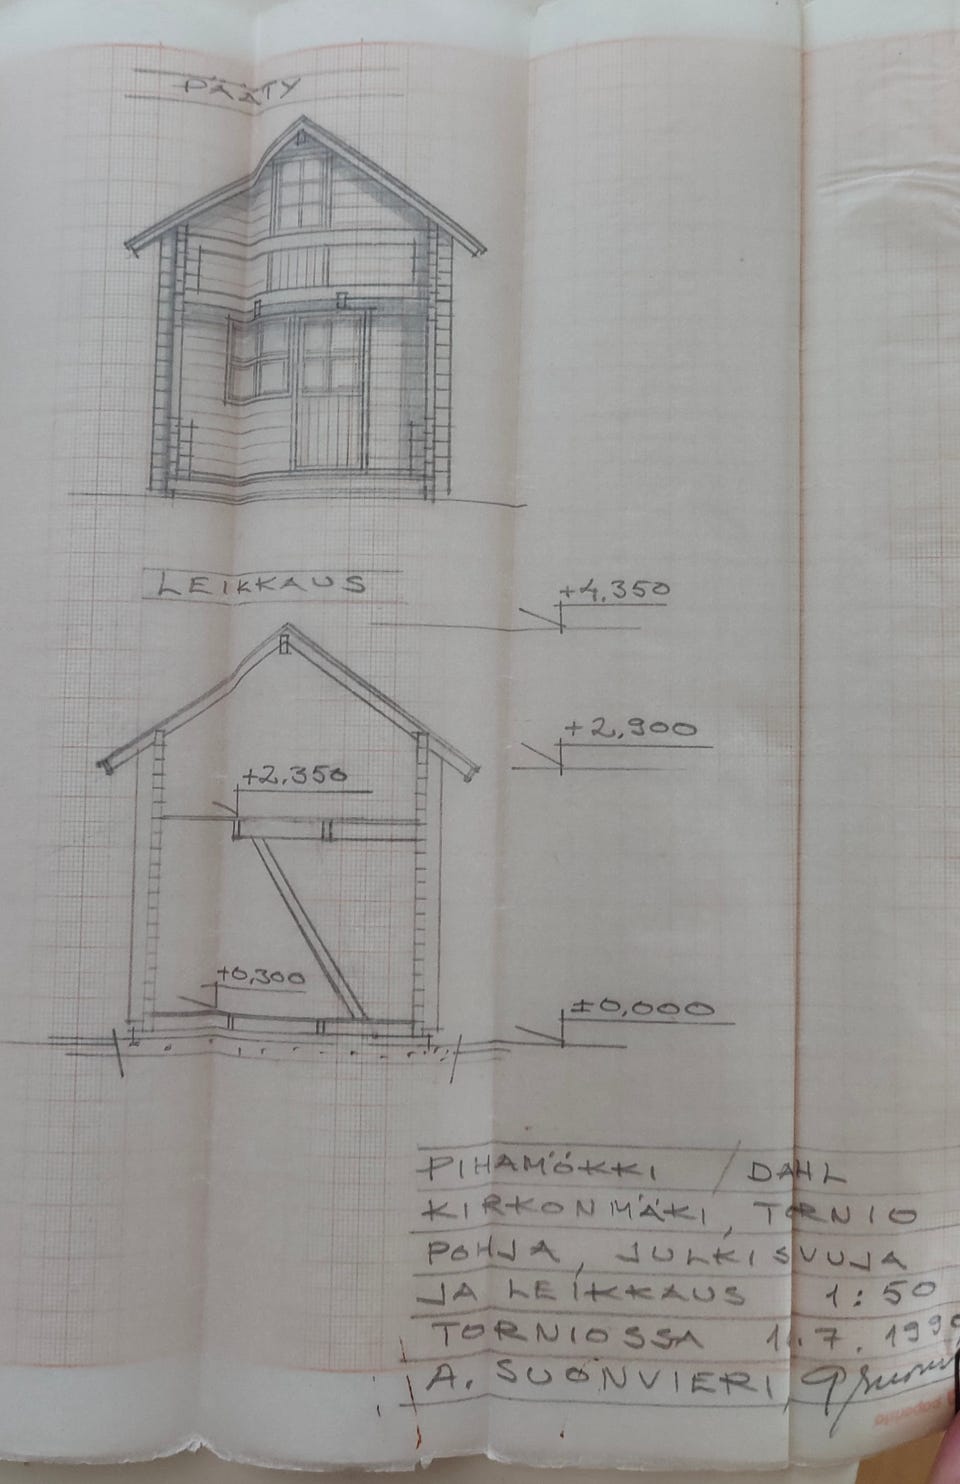 PÄÄTY
LEIKKAUS
+4,350
+2,900
+2,350
+0,300
±0,000
PIHAMÖKKI / DAHL
KIRKONMÄKI, TORNIO
POHJA, JULKISVUJA
JA LEIKKAUS 1:50
TORNIOSSA 11.7.1999
A. SUONVIERI